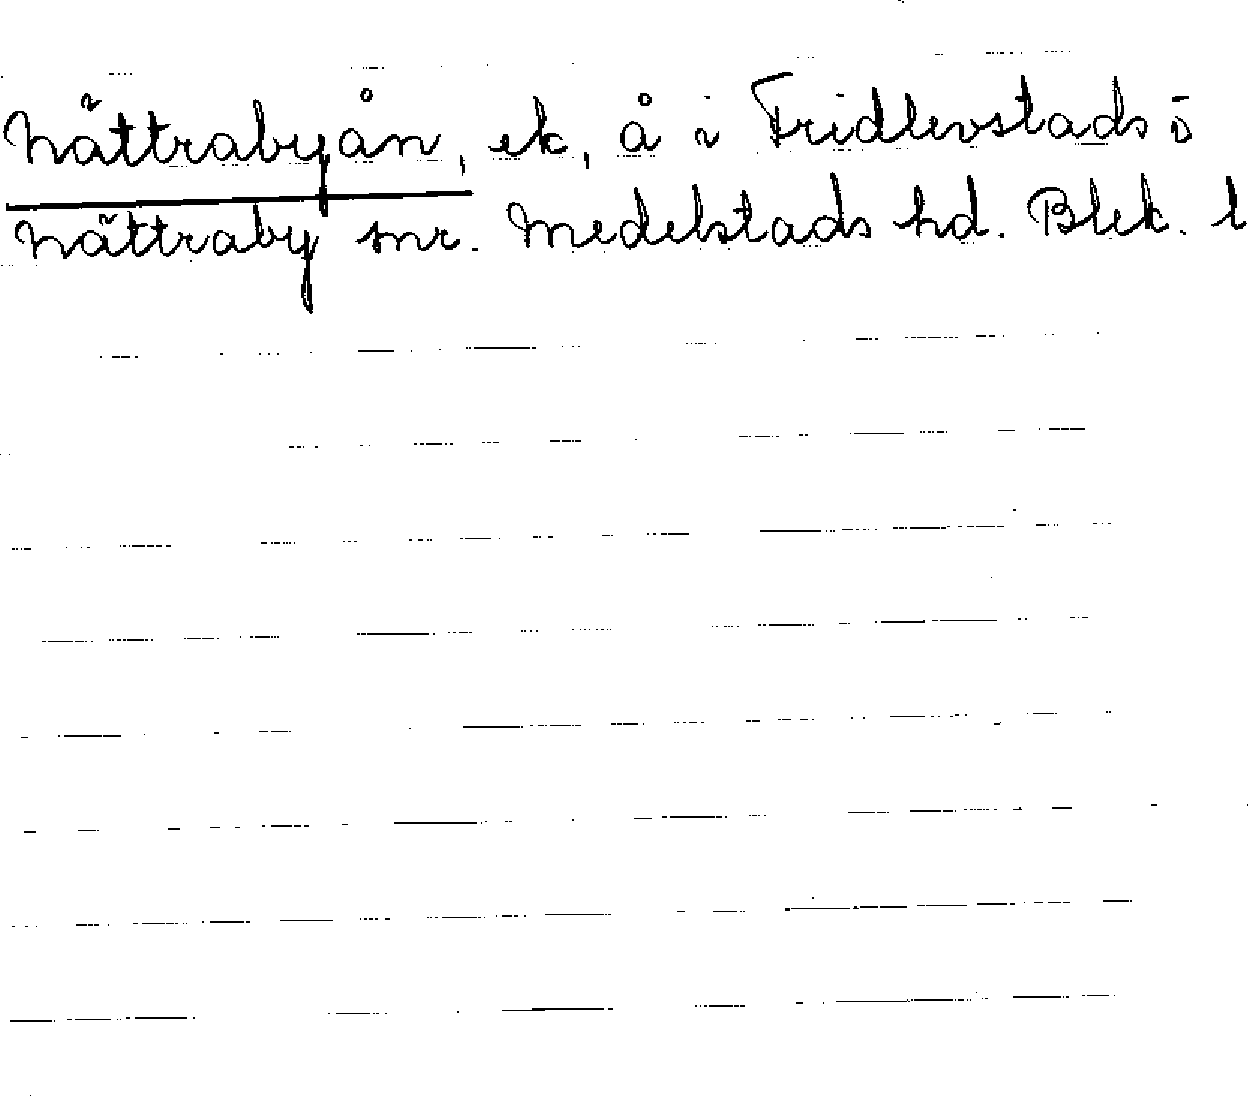 Nättrabyån, ek, å i Fridlevstads o
Nättraby snr. Medelstads hd. Blek. l